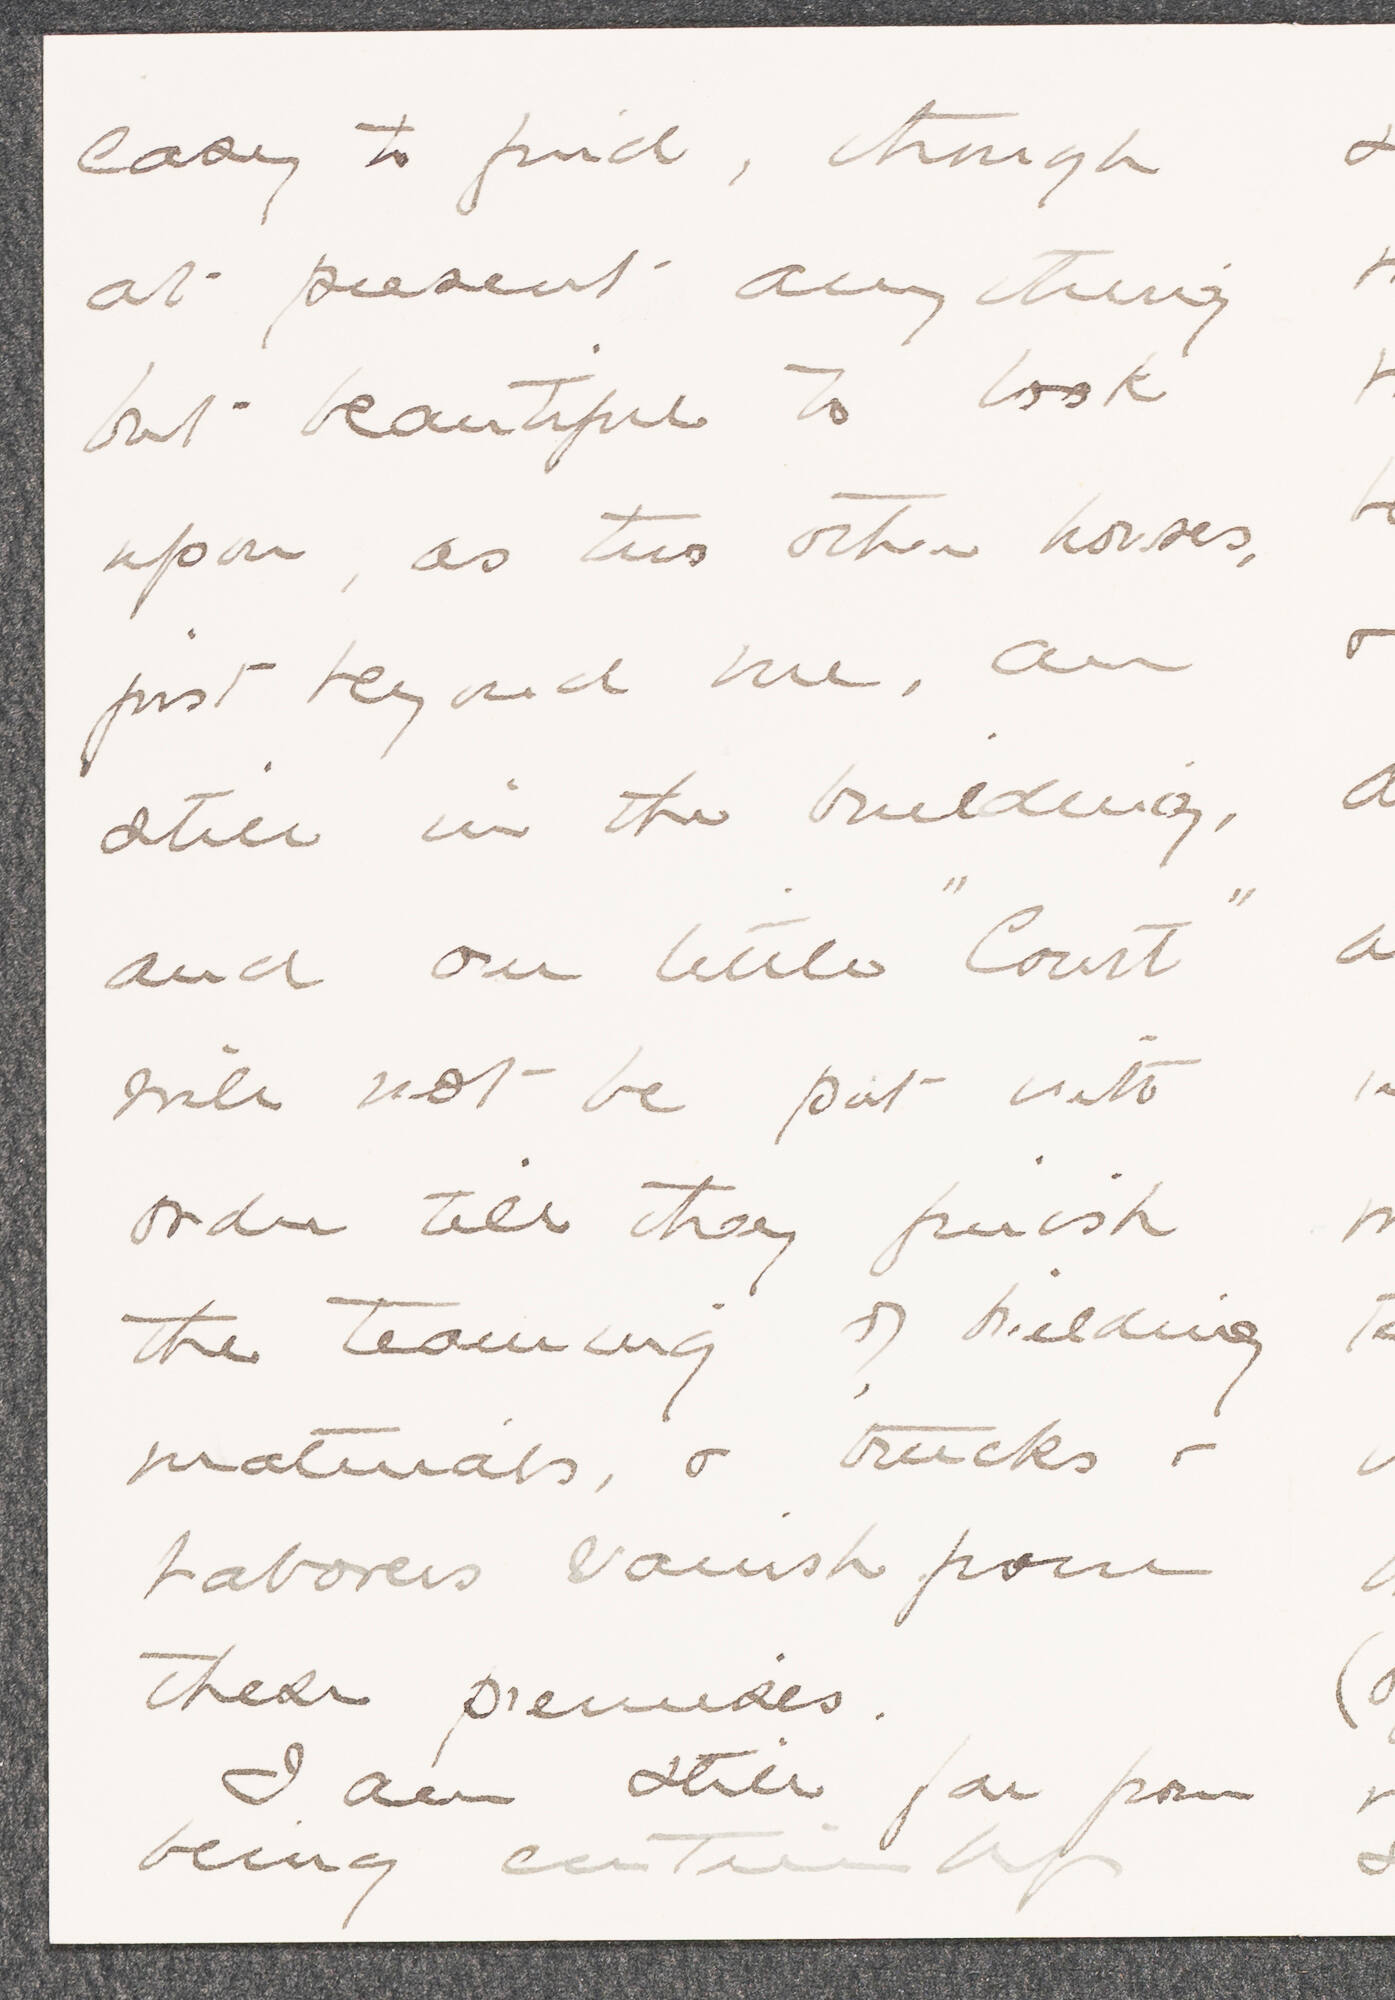 easy to find, though
at present anything
but beautiful to look
upon, as two other houses,
just beyond me, are
still in the building,
and our little "Court"
will not be put into
order till they finish
the teaming of building
materials, & trucks &
laborers vanish from
these premises.
I am still far from
being entirely